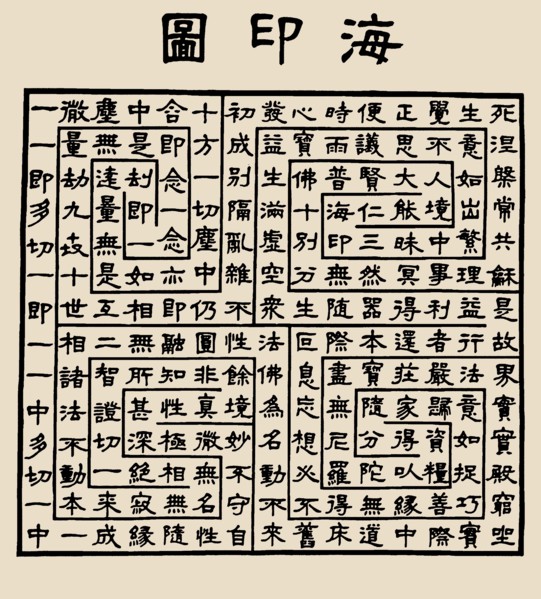 海印圖
一微塵中含十初發心時便正覺生死
一量無是即方成益寶雨議思不意涅
即劫遠劫念一別生佛普賢大人如槃
多九量即一切隔滿十海仁能境出常
切世無一念塵亂虛別印三昧中繁共
一十是如亦中雜空分無然冥事理龢
即世互相即仍不眾生隨器得利益是
一相二無融圓性法叵際本還者行故
一諸智所知非餘佛息盡寶莊嚴法界
中法證甚性真境為忘無隨家歸意實
多不切深極微妙名想尼分得資如實
切動一絕相無不動必羅陀以糧捉殿
一本來寂無名守不不得無緣善巧窮
中一成緣隨性自來舊床道中際實坐